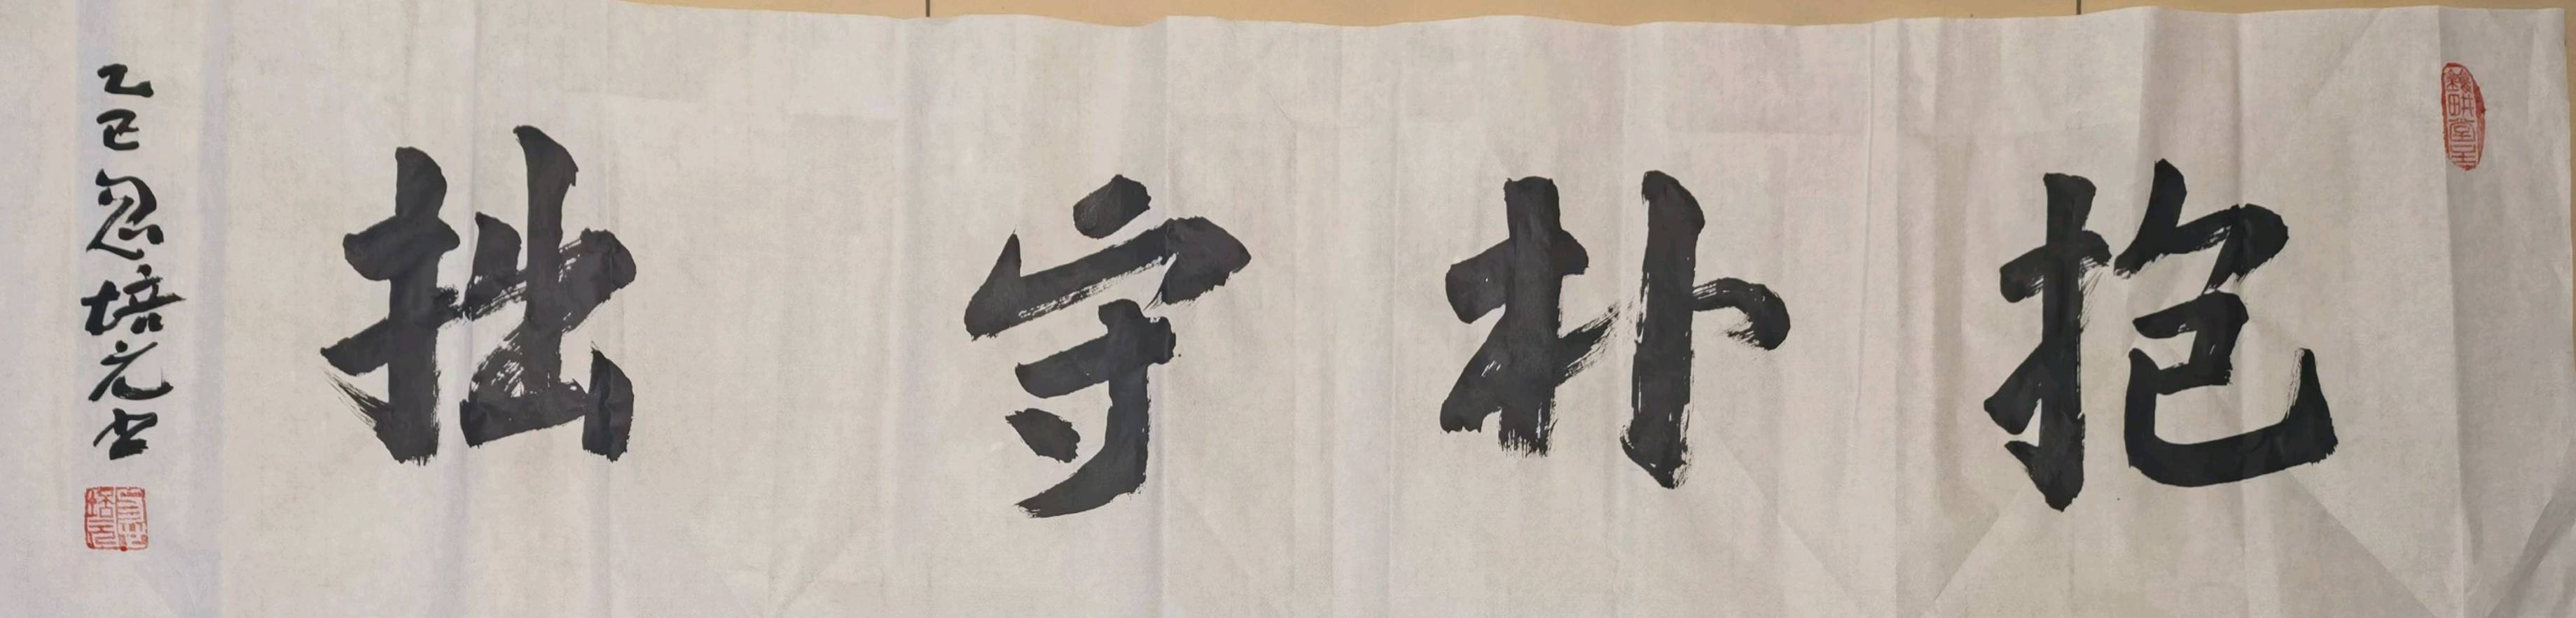 抱朴守拙
乙巳忽培元书